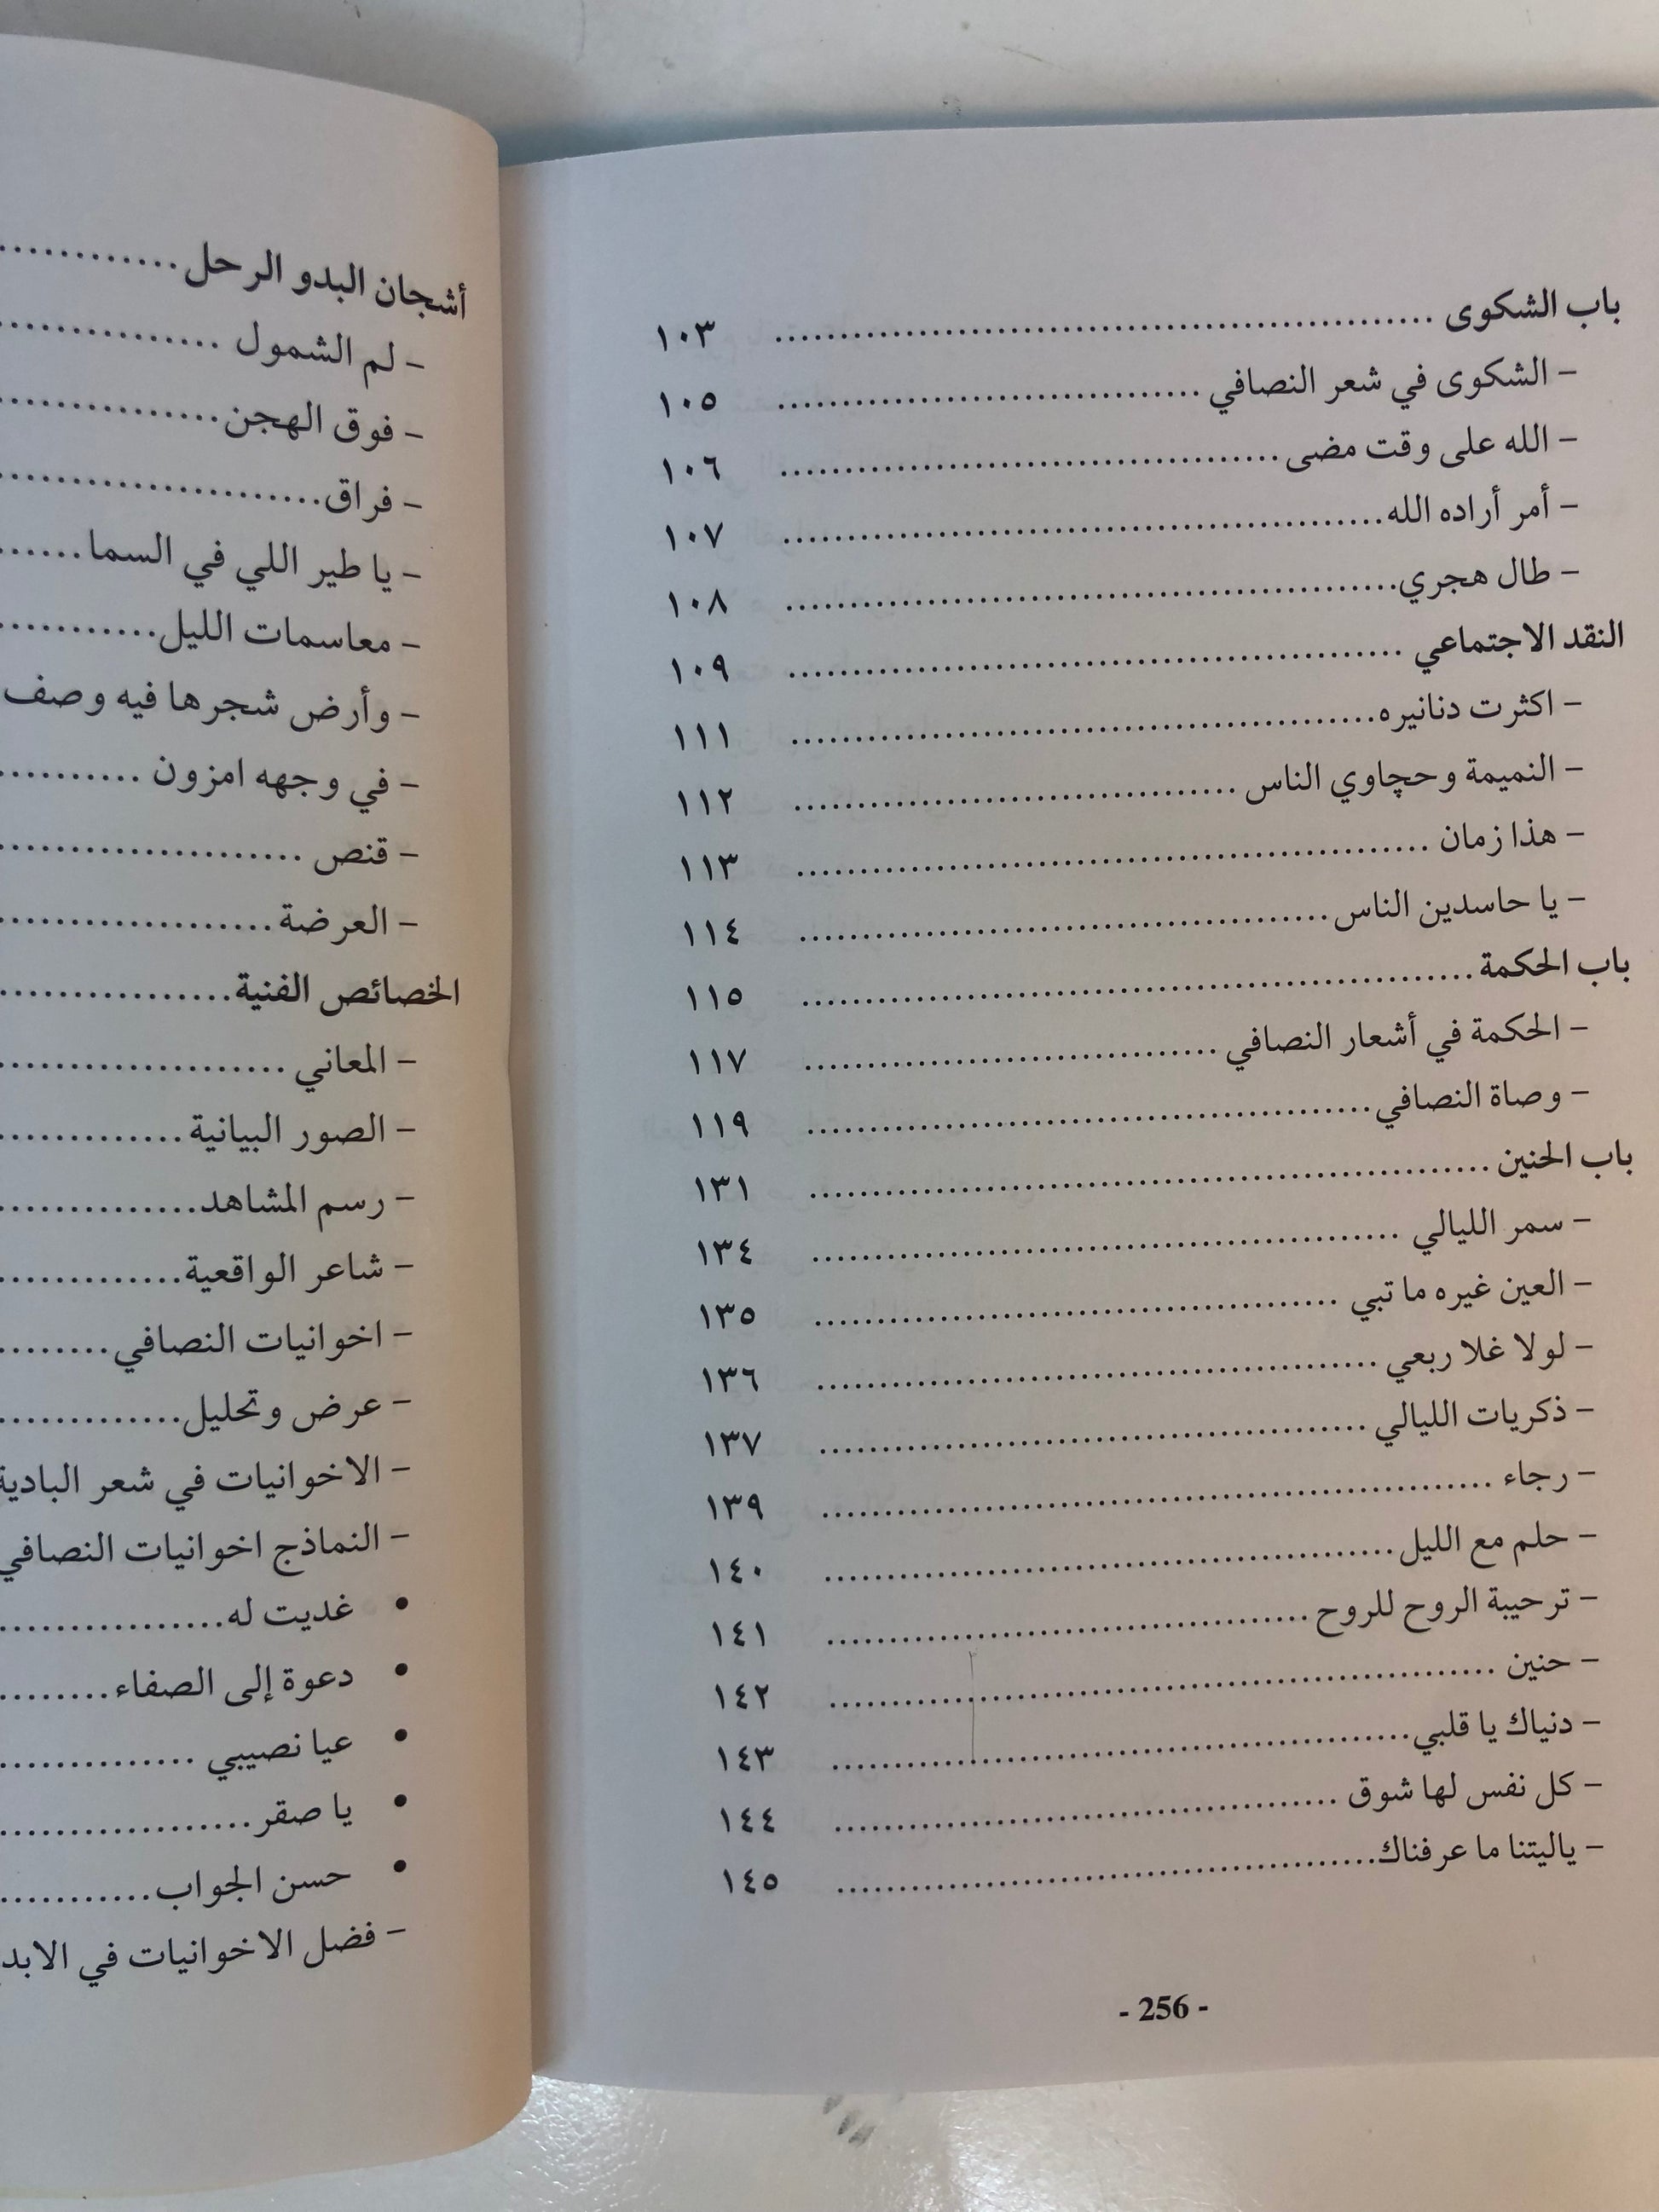 باب الشكوى .................... ١٠٣
– الشكوى في شعر النصافي .................... ١٠٥
– الله على وقت مضى .................... ١٠٦
– أمر أراده الله .................... ١٠٧
– طال هجري .................... ١٠٨
النقد الاجتماعي .................... ١٠٩
– اكثرت دنانيره .................... ١١١
– النميمة وحچاوي الناس .................... ١١٢
– هذا زمان .................... ١١٣
– يا حاسدين الناس .................... ١١٤
باب الحكمة .................... ١١٥
– الحكمة في أشعار النصافي .................... ١١٧
– وصاة النصافي .................... ١١٩
باب الحنين .................... ١٣١
– سمر الليالي .................... ١٣٤
– العين غيره ما تبي .................... ١٣٥
– لولا غلا ربعي .................... ١٣٦
– ذكريات الليالي .................... ١٣٧
– رجاء .................... ١٣٩
– حلم مع الليل .................... ١٤٠
– ترحيبة الروح للروح .................... ١٤١
– حنين .................... ١٤٢
– دنياك يا قلبي .................... ١٤٣
– كل نفس لها شوق .................... ١٤٤
– ياليتنا ما عرفناك .................... ١٤٥
- 256 -
أشجان البدو الرحل ............
– لم الشمول ............
– فوق الهجن ............
– فراق ............
– يا طير اللي في السما ......
– معاسمات الليل ............
– وأرض شجرها فيه وصف
– في وجهه امزون ..........
– قنص ............
– العرضة ............
الخصائص الفنية ............
– المعاني ............
– الصور البيانية ............
– رسم المشاهد ............
– شاعر الواقعية ............
– اخوانيات النصافي ........
– عرض وتحليل ............
– الاخوانيات في شعر البادية
– النماذج اخوانيات النصافي
• غديت له ............
• دعوة إلى الصفاء ........
• عيا نصيبي ............
• يا صقر ............
• حسن الجواب ............
– فضل الاخوانيات في